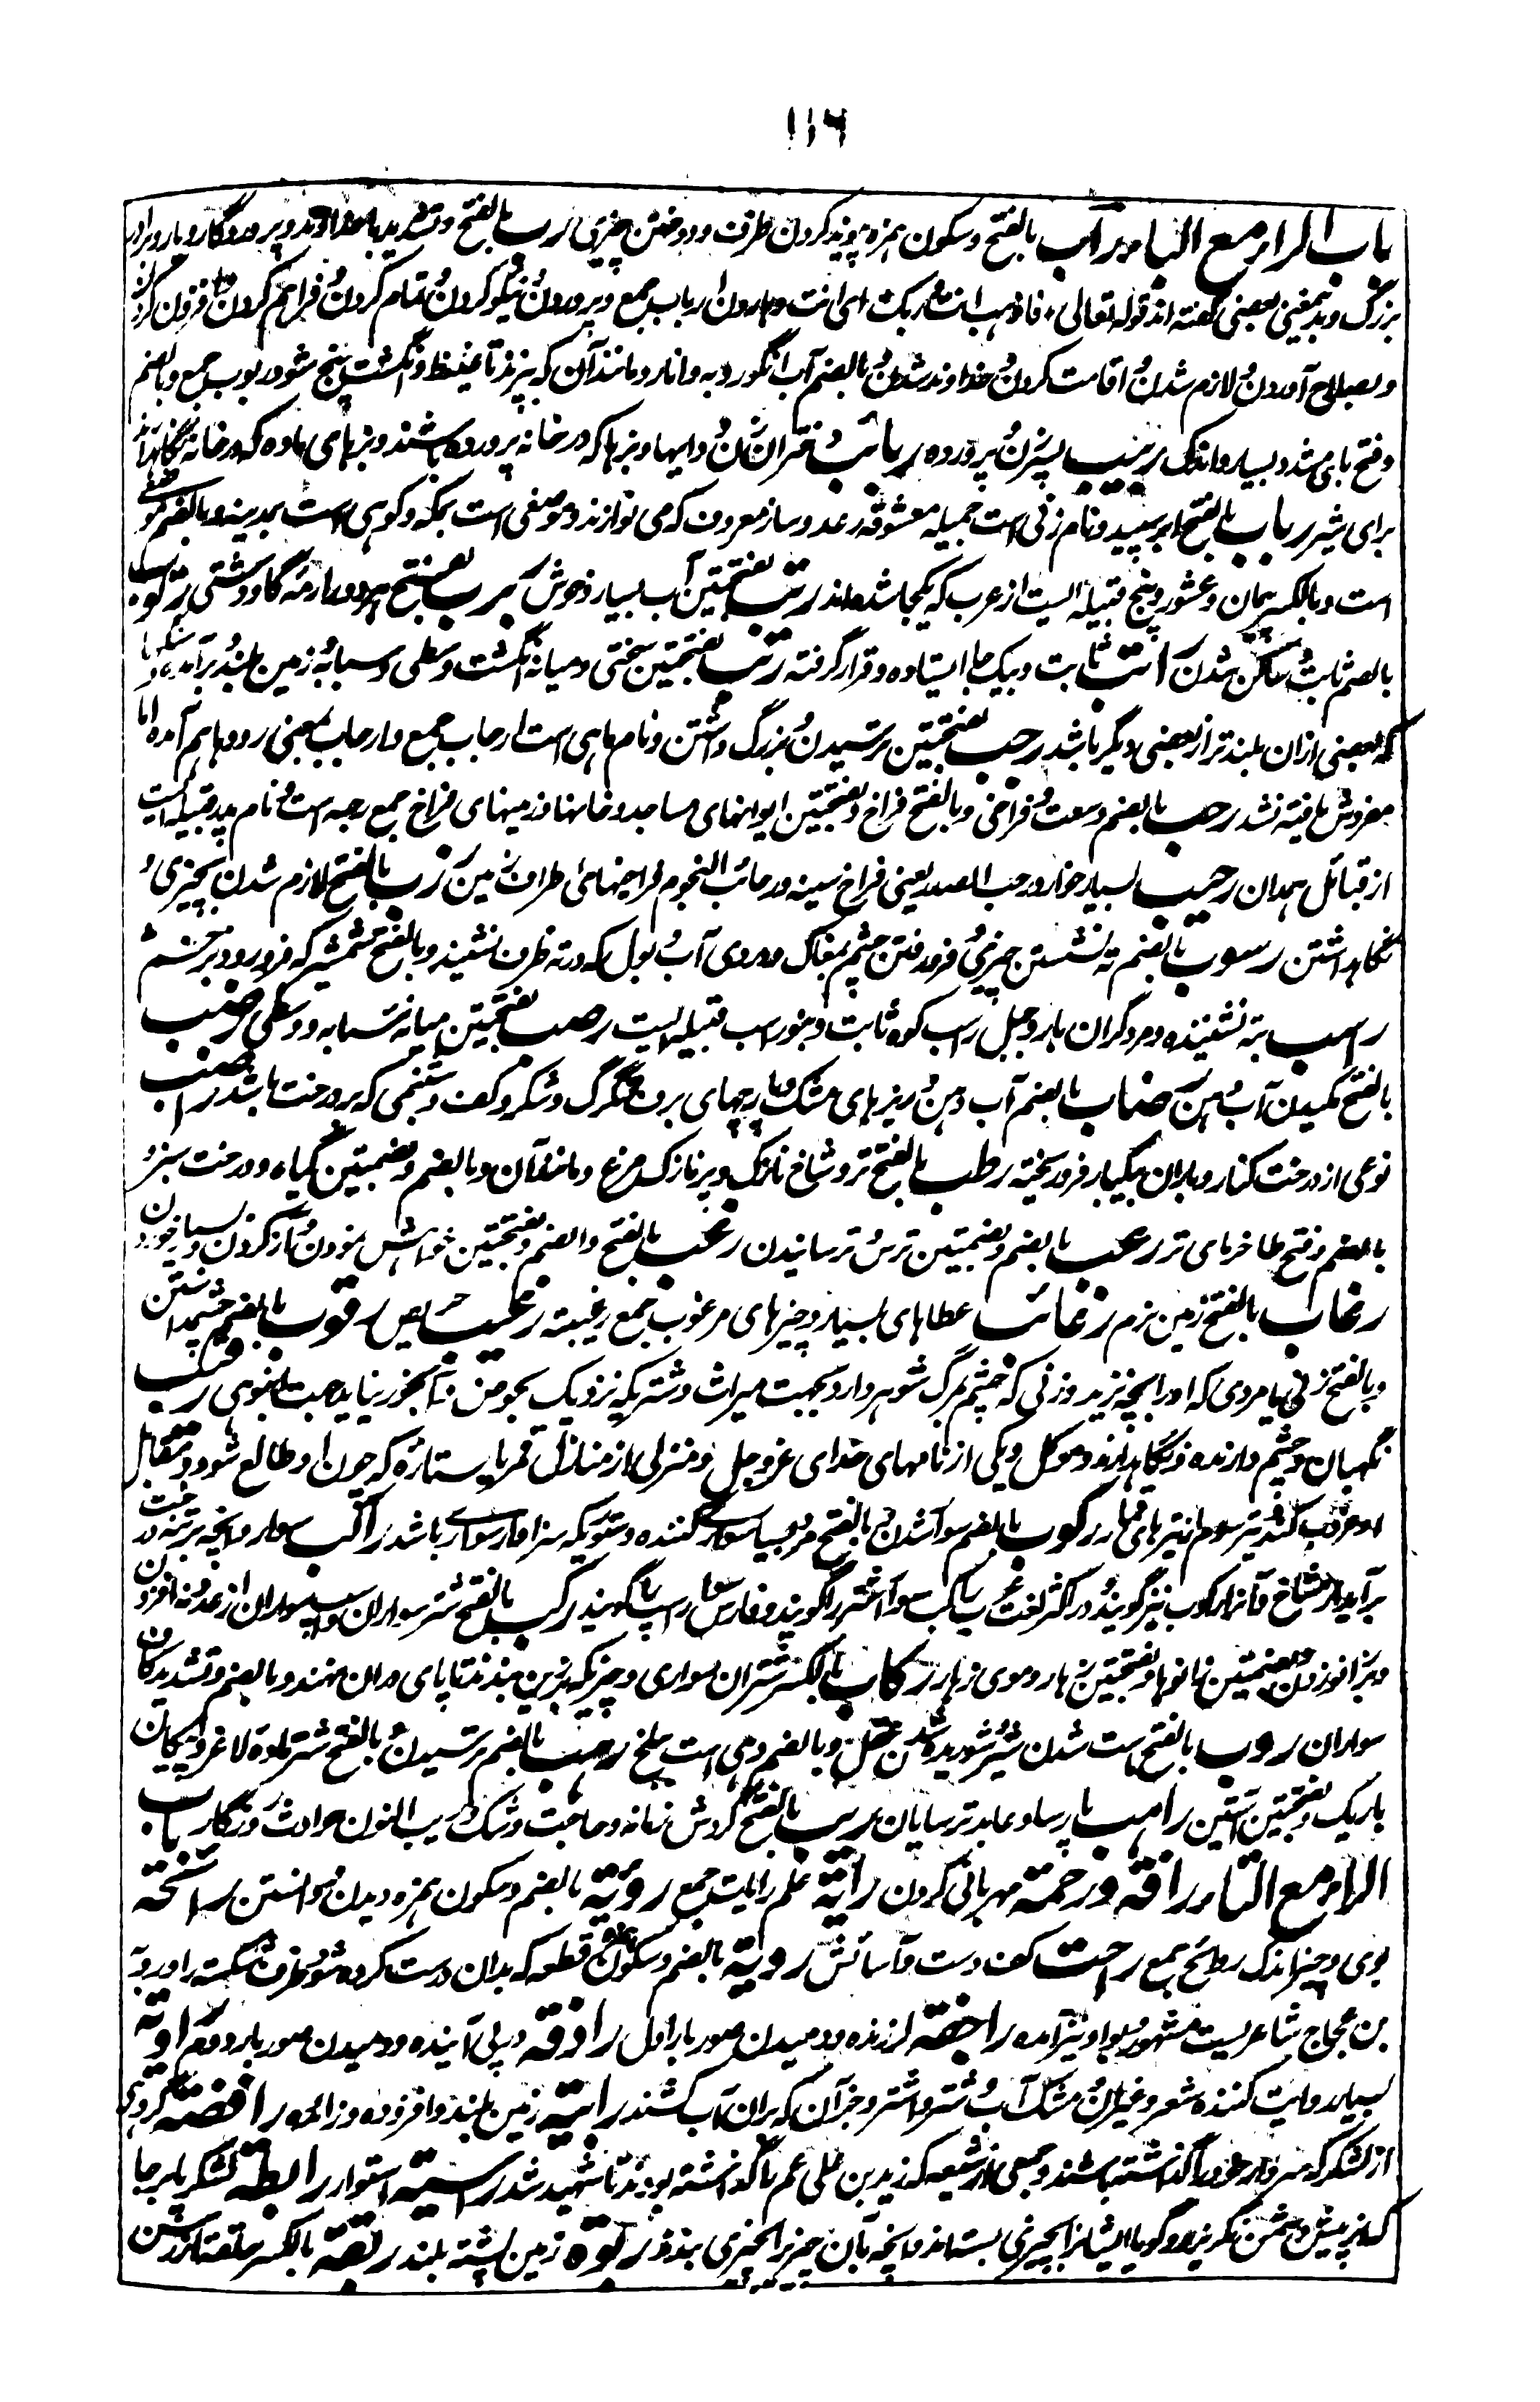 ۱۱۶
باب الراء مع الباء رأب بالفتح و سکون همزه پیوند کردن ظرف و دوختن چیزی رب بالفتح و تشدید با خداوند و پروردگار و برادر
بزرگ و بدینمعنی بعضی گفته اند قوله تعالی فاذهب انت و ربک ای انت و هارون ارباب جمع و پروردن و نیکو کردن و تمام کردن و فراهم کردن و افزون کردن
و بصلاح آوردن و لازم شدن و اقامت کردن و خداوند شدن و بالضم آب انگور و به و انار و مانند آن که بپزند تا غلیظ و انگشت پیچ شود ربوب جمع و بالضم
و فتح بای مشدد بسیار و اندک ربیب پسر زن و پرورده ربائب دختران زنان و دایها و بزها که در خانه پرورده باشند و بزهای ماده که در خانه نگاهدارند
برای شیر رباب بالفتح ابر سپید و نام زنی است جمیله معشوقه رعد و ساز معروف که می نوازند و موضعی است بمکه و کوهی است بمدینه و بالضم موضعی
است و بالکسر پیمان و عشور و پنج قبیله ایست از عرب که یکجا شده اند ربب بفتحتین آب بسیار و خوش ربرب بفتح هر دو را رمه گاو دشتی رتوب
بالضم ثابت و ساکن شدن راتب ثابت و بیک جا ایستاده و قرار گرفته رتب بفتحتین سختی و میانه انگشت وسطی و سبابه و زمین بلند برآمده و سنگها
که بعضی ازان بلندتر از بعضی دیگر باشد رجب بفتحتین ترسیدن و بزرگ داشتن و نام ماهی است ارجاب جمع و ارجاب بمعنی رودها هم آمده اما
مفردش یافته نشد رحب بالضم وسعت و فراخی و بالفتح فراخ و بفتحتین ایوانهای مساجد و خانها و زمینهای فراخ جمع رحبه است و نام پدر قبیله ایست
از قبائل همدان رحیب بسیار خوار و رحب الصدر یعنی فراخ سینه و رحائب النجوم فراخیهای اطراف زمین رزب بالفتح لازم شدن بچیزی و
نگاه داشتن رسوب بالضم ته نشستن چیزی و فرو رفتن چشم بمغاک و دردی آب و بول که در ته ظرف نشیند و بالفتح شمشیر که فرو رود بزخم
راسب به ته نشیننده و مرد گران بار و جبل راسب کوه ثابت و بنو راسب قبیله ایست رصب بفتحتین میانه سبابه و وسطی رضب
بالفتح مکیدن آب دهن رضاب بالضم آب دهن و ریزهای مشک و پارچهای برف و تگرگ و شکر و کف و شبنمی که بر درخت باشد راضب
نوعی از درخت کنار و باران بیکبار فرو ریخته رطب بالفتح تر و شاخ نازک و پر نازک مرغ و مانند آن و بالضم و بضمتین گیاه و درخت سبز و
بالضم و فتح طا خرمای تر رعب بالضم و بضمتین ترس و ترسانیدن رغب بالفتح و الضم و بفتحتین خواهش نمودن و آز کردن و بسیار خوردن
رغاب بالفتح زمین نرم رغائب عطاهای بسیار و چیزهای مرغوب جمع رغیبه رغیب حریص رقوب بالضم چشم داشتن
و بالفتح زنی یا مردی که او را بچه نزید و زنی که چشم مرگ شوهر دارد بجهت میراث و شتریکه نزدیک بحوض تا آبخور نیاید رقیب
نگهبان و چشم دارنده و نگاهدارنده و موکل و یکی از نامهای خدای عز و جل و منزلی از منازل قمر یا ستاره که چون او طالع شود رقیب مقابل
او غروب کند و تیر سوم از تیرهای قمار رکوب بالضم سوار شدن و بالفتح مرد بسیار سواری کننده و ستوریکه سزاوار سواری باشد راکب سوار و آنچه بر تنه درخت
برآید از شاخ و آنرا راکوب نیز گویند و در اکثر لغت عرب راکب سوار شتر را گویند و فارس سوار اسپ را گویند رکب بالفتح شتر سواران و اسپ سواران از عدد ده افزون
و بزانو زدن و بضمتین زانوها و بفتحتین زهار و موی زهار رکاب بالکسر شتران سواری و چیزیکه بزین بندند تا پای دران نهند و بالضم و تشدید کاف
سواران روب بالفتح ماست شدن شیر و شوریده شدن عقل و بالضم دهی است ببلخ رهب بالضم ترسیدن و بالفتح شتر ماده لاغر و پیکان
باریک و بفتحتین آستین راهب پارسا و عابد ترسایان ریب بالفتح گردش زمانه و حاجت و شک و ریب المنون حوادث روزگار باب
الراء مع التاء رأفة و رحمة مهربانی کردن رایة علم رایات جمع رؤیة بالضم و سکون همزه دیدن و دانستن رائحة
بوی و چیز اندک روائح جمع راحت کف دست و آسائش رؤبة بالضم و سکون همزه قطعه که بدان درست کرده شود ظرف شکسته را و رؤبة
بن عجاج شاعریست مشهور و بواو نیز آمده راجفة لرزنده و دمیدن صور بار اول رادفة در پی آینده و دمیدن صور بار دوم راویة
بسیار روایت کننده شعر و غیر آن و مشک آب و شتر و استر و خر آن که بران آب کشند رابیة زمین بلند و افزوده و زائده رافضة گروهی
از لشکر که سردار خود را گذاشته باشند و جمعی از شیعه که زید بن علی عم را گذاشته بودند تا شهید شد راسیة استوار رابطة لشکر پابرجا
که از پیش دشمن نگریزد و گویا ایشانرا بچیزی بسته اند و آنچه بآن چیزیرا بچیزی بندند ربوة زمین پشته بلند ربقة بالکسر حلقه از رسن